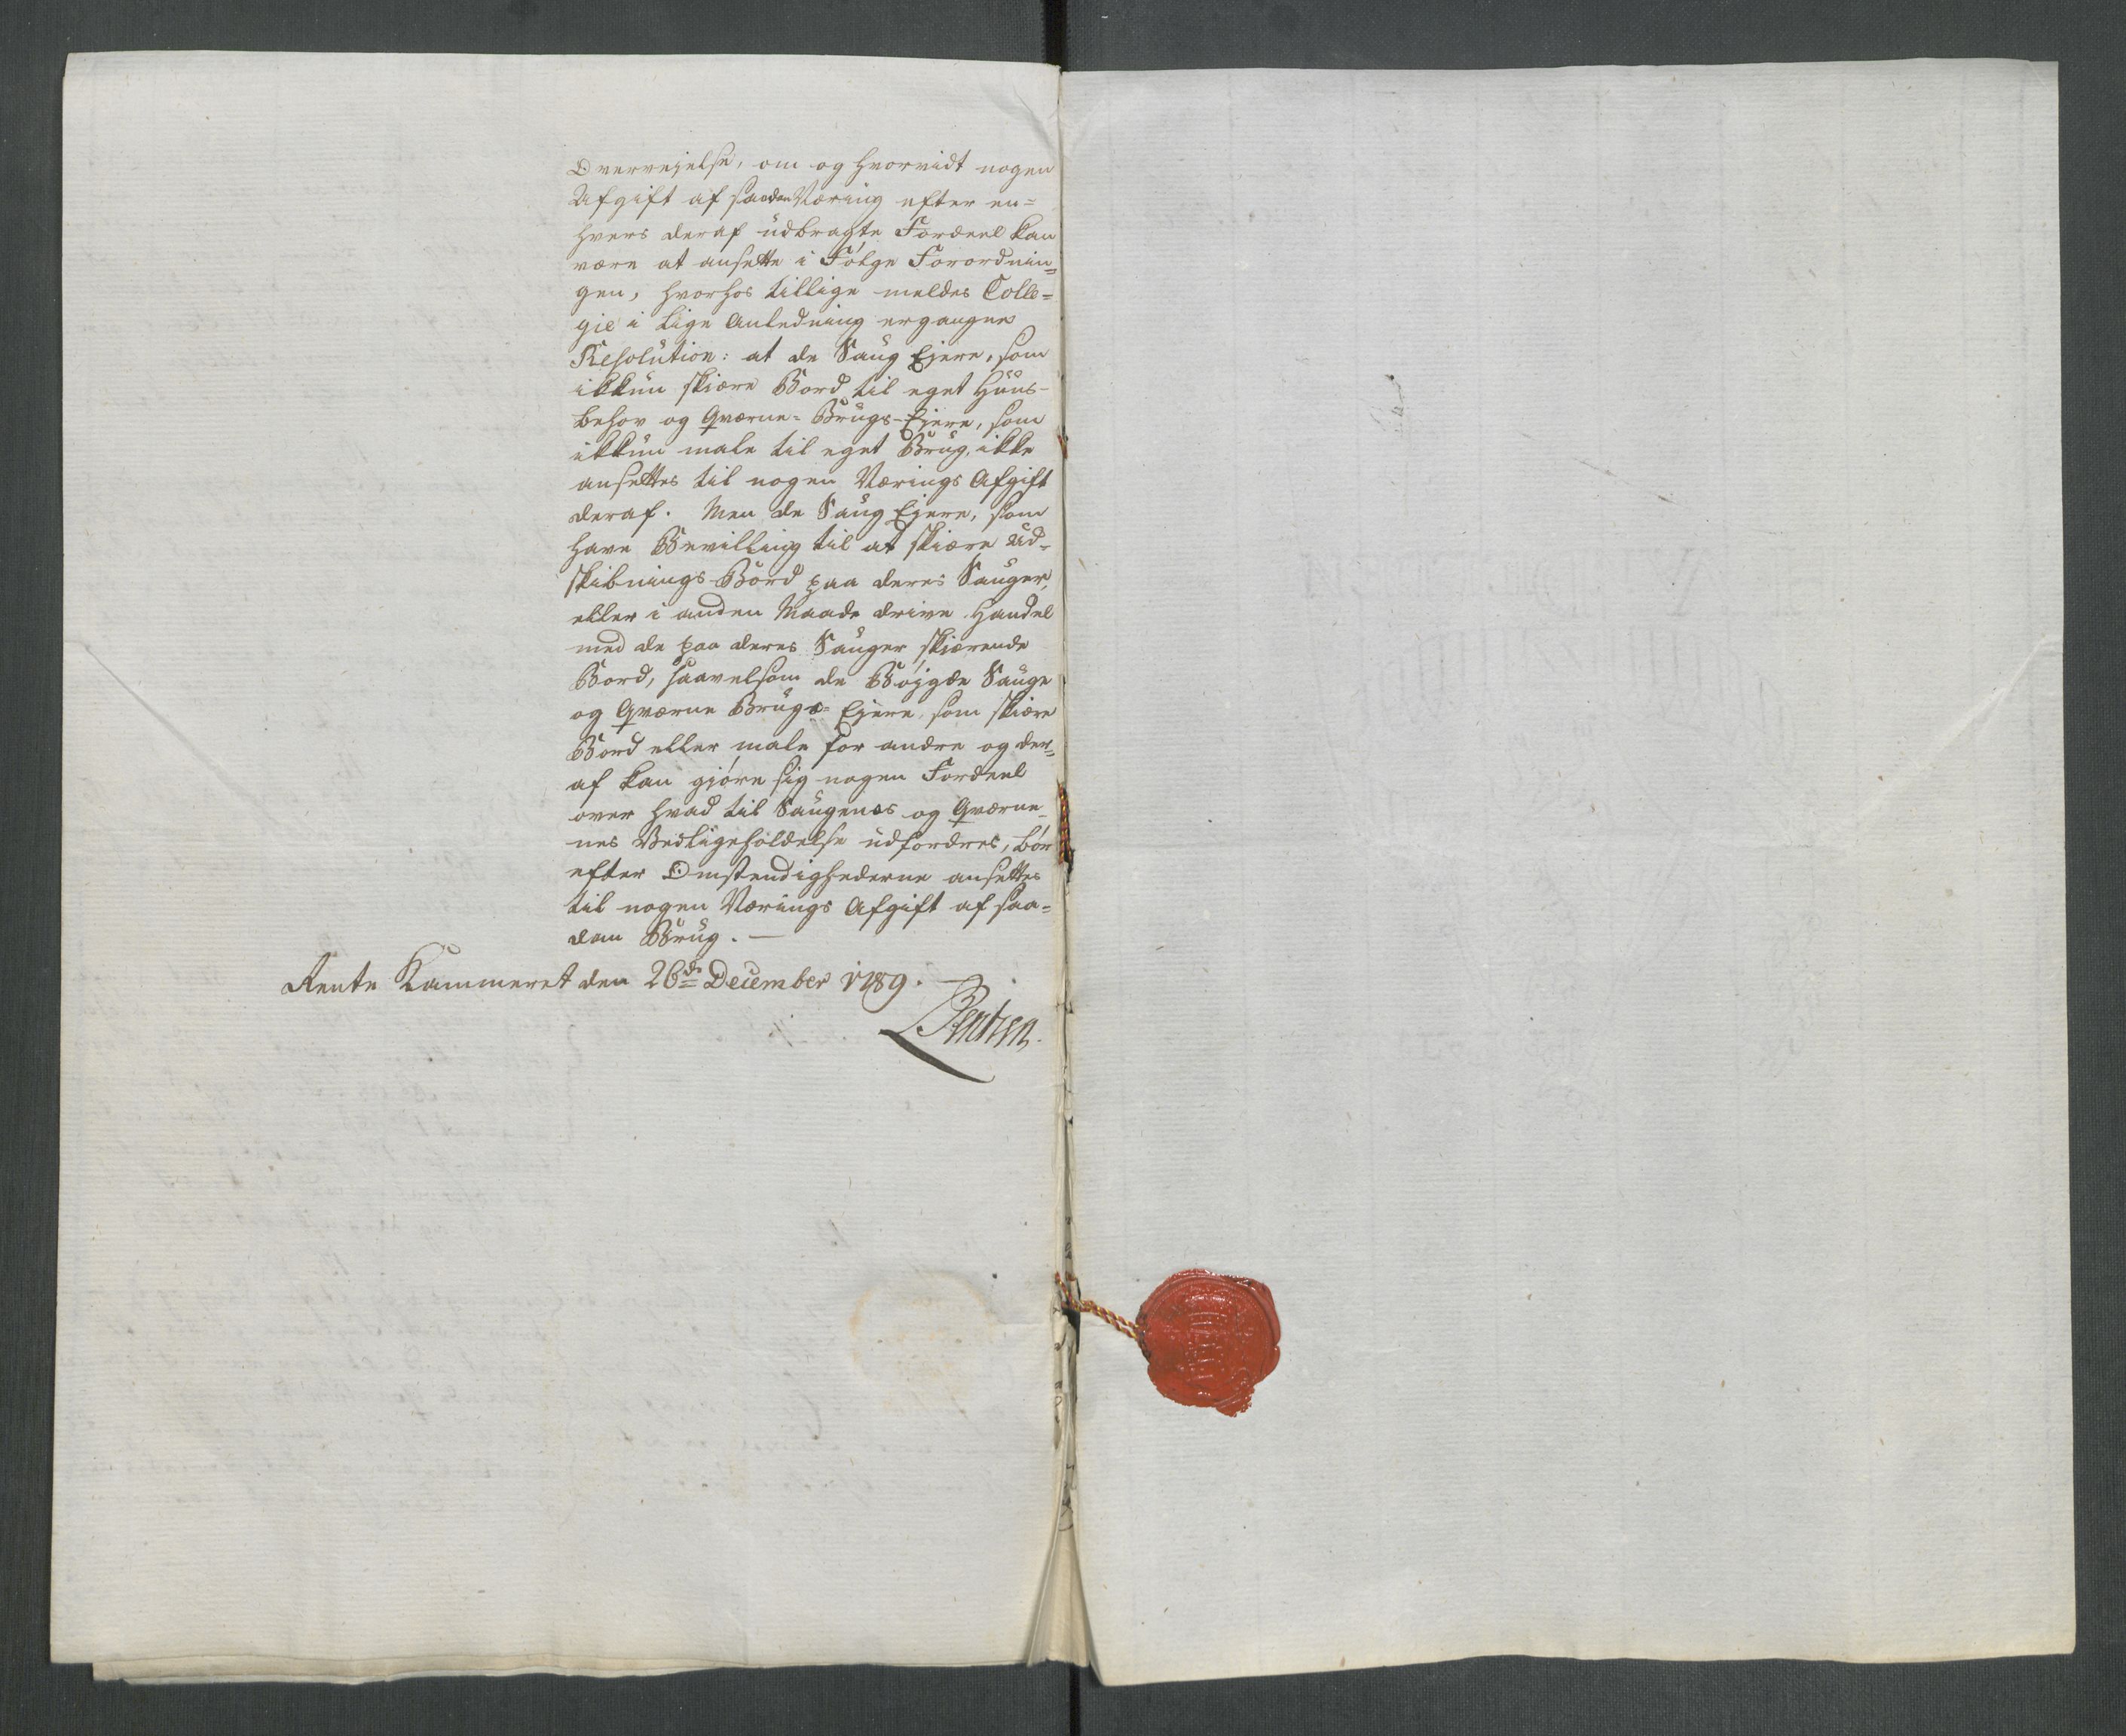 Overvejelse, om og hvorvidt nogen
Afgift af saadan Næring efter en=
hvers deraf udbragte Fordeel kan
være at ansette i Følge Forordnin=
gen, hvorhos tillige meldes Colle=
gie i lige Anledning ergangne
Resolution: at de Saug Ejere, som
ikkun skiære Bord til eget Huus-
behov og Qværne=Brugs-Ejere, som
ikkun male til eget Brug, ikke
ansettes til nogen Nærings Afgift
deraf. Men de Saug Ejere, som
have Bevilling til at skiære Ud-
skibnings-Bord paa deres Sauger,
eller i anden Maade drive Handel
med de paa deres Sauger skiærende
Bord, saavelsom de Bøygde Sauge
og Qværne Brugs=Ejere, som skiære
Bord eller male for andre og der=
af kan gjøre sig nogen Fordeel
over hvad til Saugenes og Qværne-
nes Vedligeholdelse udfordres, bør
efter Omstendighederne ansettes
til nogen Nærings Afgift af saa=
dan Brug. —
Rente Kammeret den 26de December 1789.
Bentzen.